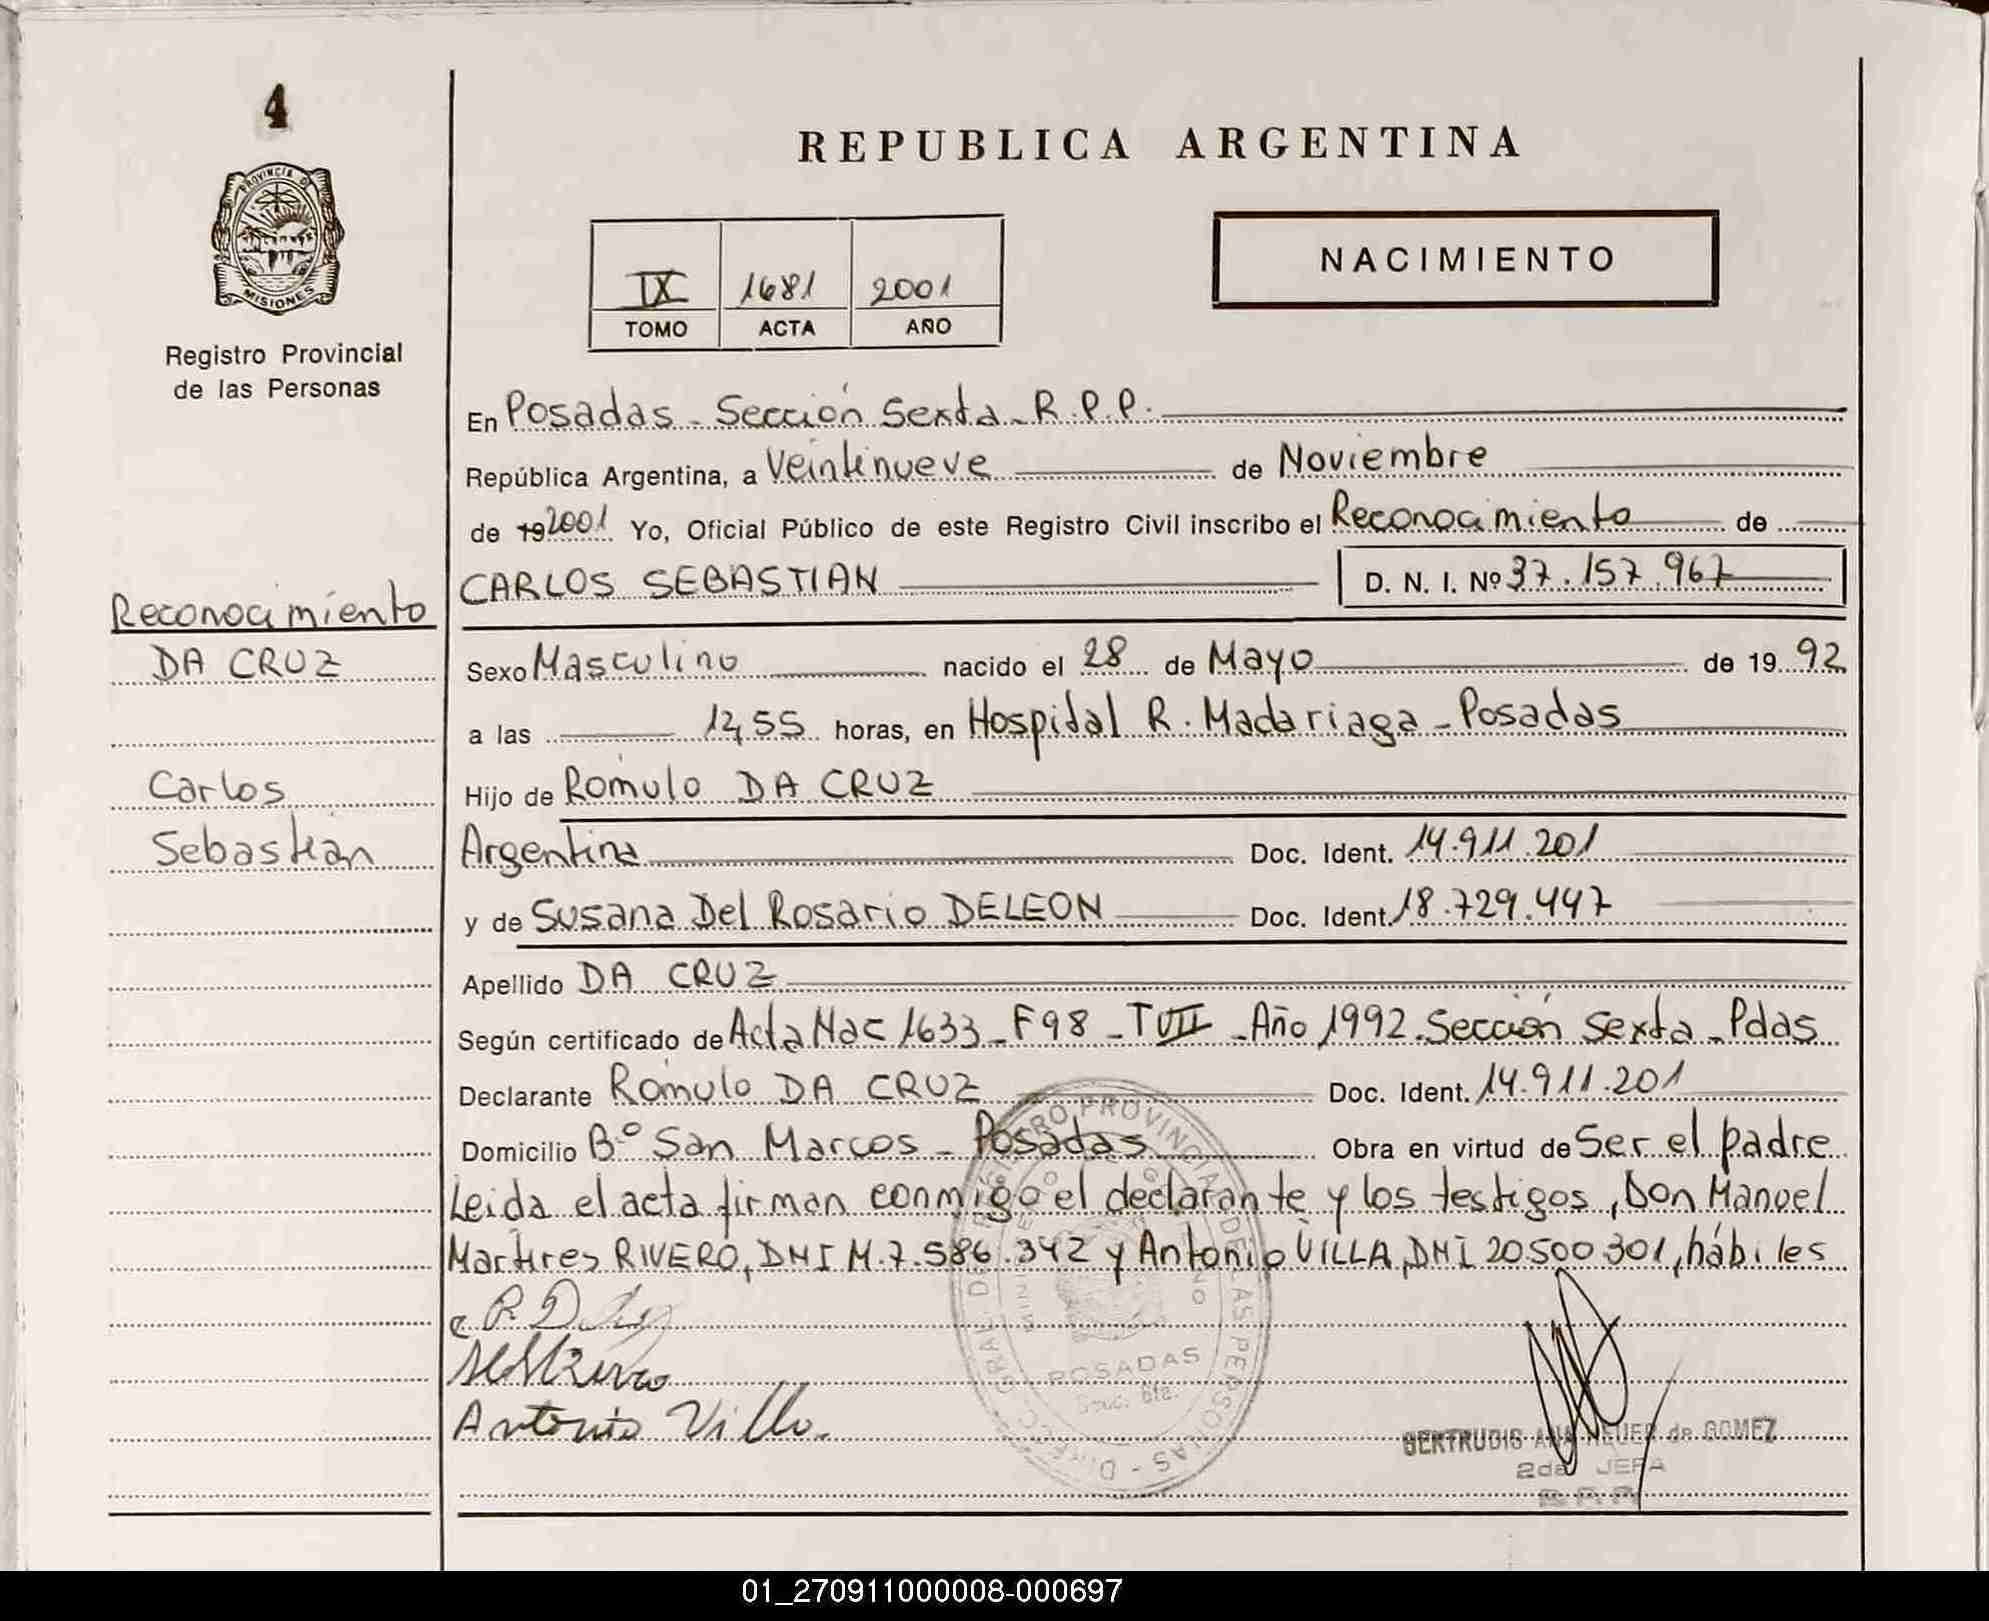 4
PROVINCIA DE
MISIONES
Registro Provincial
de las Personas
REPUBLICA ARGENTINA
NACIMIENTO
IX 1681 2001
TOMO ACTA AÑO
En Posadas - Sección Sexta - R.P.P.
República Argentina, a Veintinueve de Noviembre
de 192001 Yo, Oficial Público de este Registro Civil inscribo el Reconocimiento de
CARLOS SEBASTIAN D. N. I. Nº 37.157.967
Reconocimiento
DA CRUZ
Carlos
Sebastián
Sexo Masculino nacido el 28 de Mayo de 19 92
a las 12,55 horas, en Hospital R. Madariaga - Posadas
Hijo de Rómulo DA CRUZ
Argentina Doc. Ident. 14.911.201
y de Susana Del Rosario DELEON Doc. Ident. 18.729.447
Apellido DA CRUZ
Según certificado de Acta Nac 1633 - F98 - TVII - Año 1992. Sección Sexta - Pdas
Declarante Rómulo DA CRUZ Doc. Ident. 14.911.201
Domicilio Bº San Marcos - Posadas Obra en virtud de Ser el padre
Leida el acta firman conmigo el declarante y los testigos, Don Manuel
Martires RIVERO, DNI M.7.586.342 y Antonio VILLA, DNI 20.500.301, hábiles
Antonio Villa.
POSADAS
Secc. 6ta.
GERTRUDIS ANA NEUER de GOMEZ
2da JEFA
R.P.P.
01_270911000008-000697